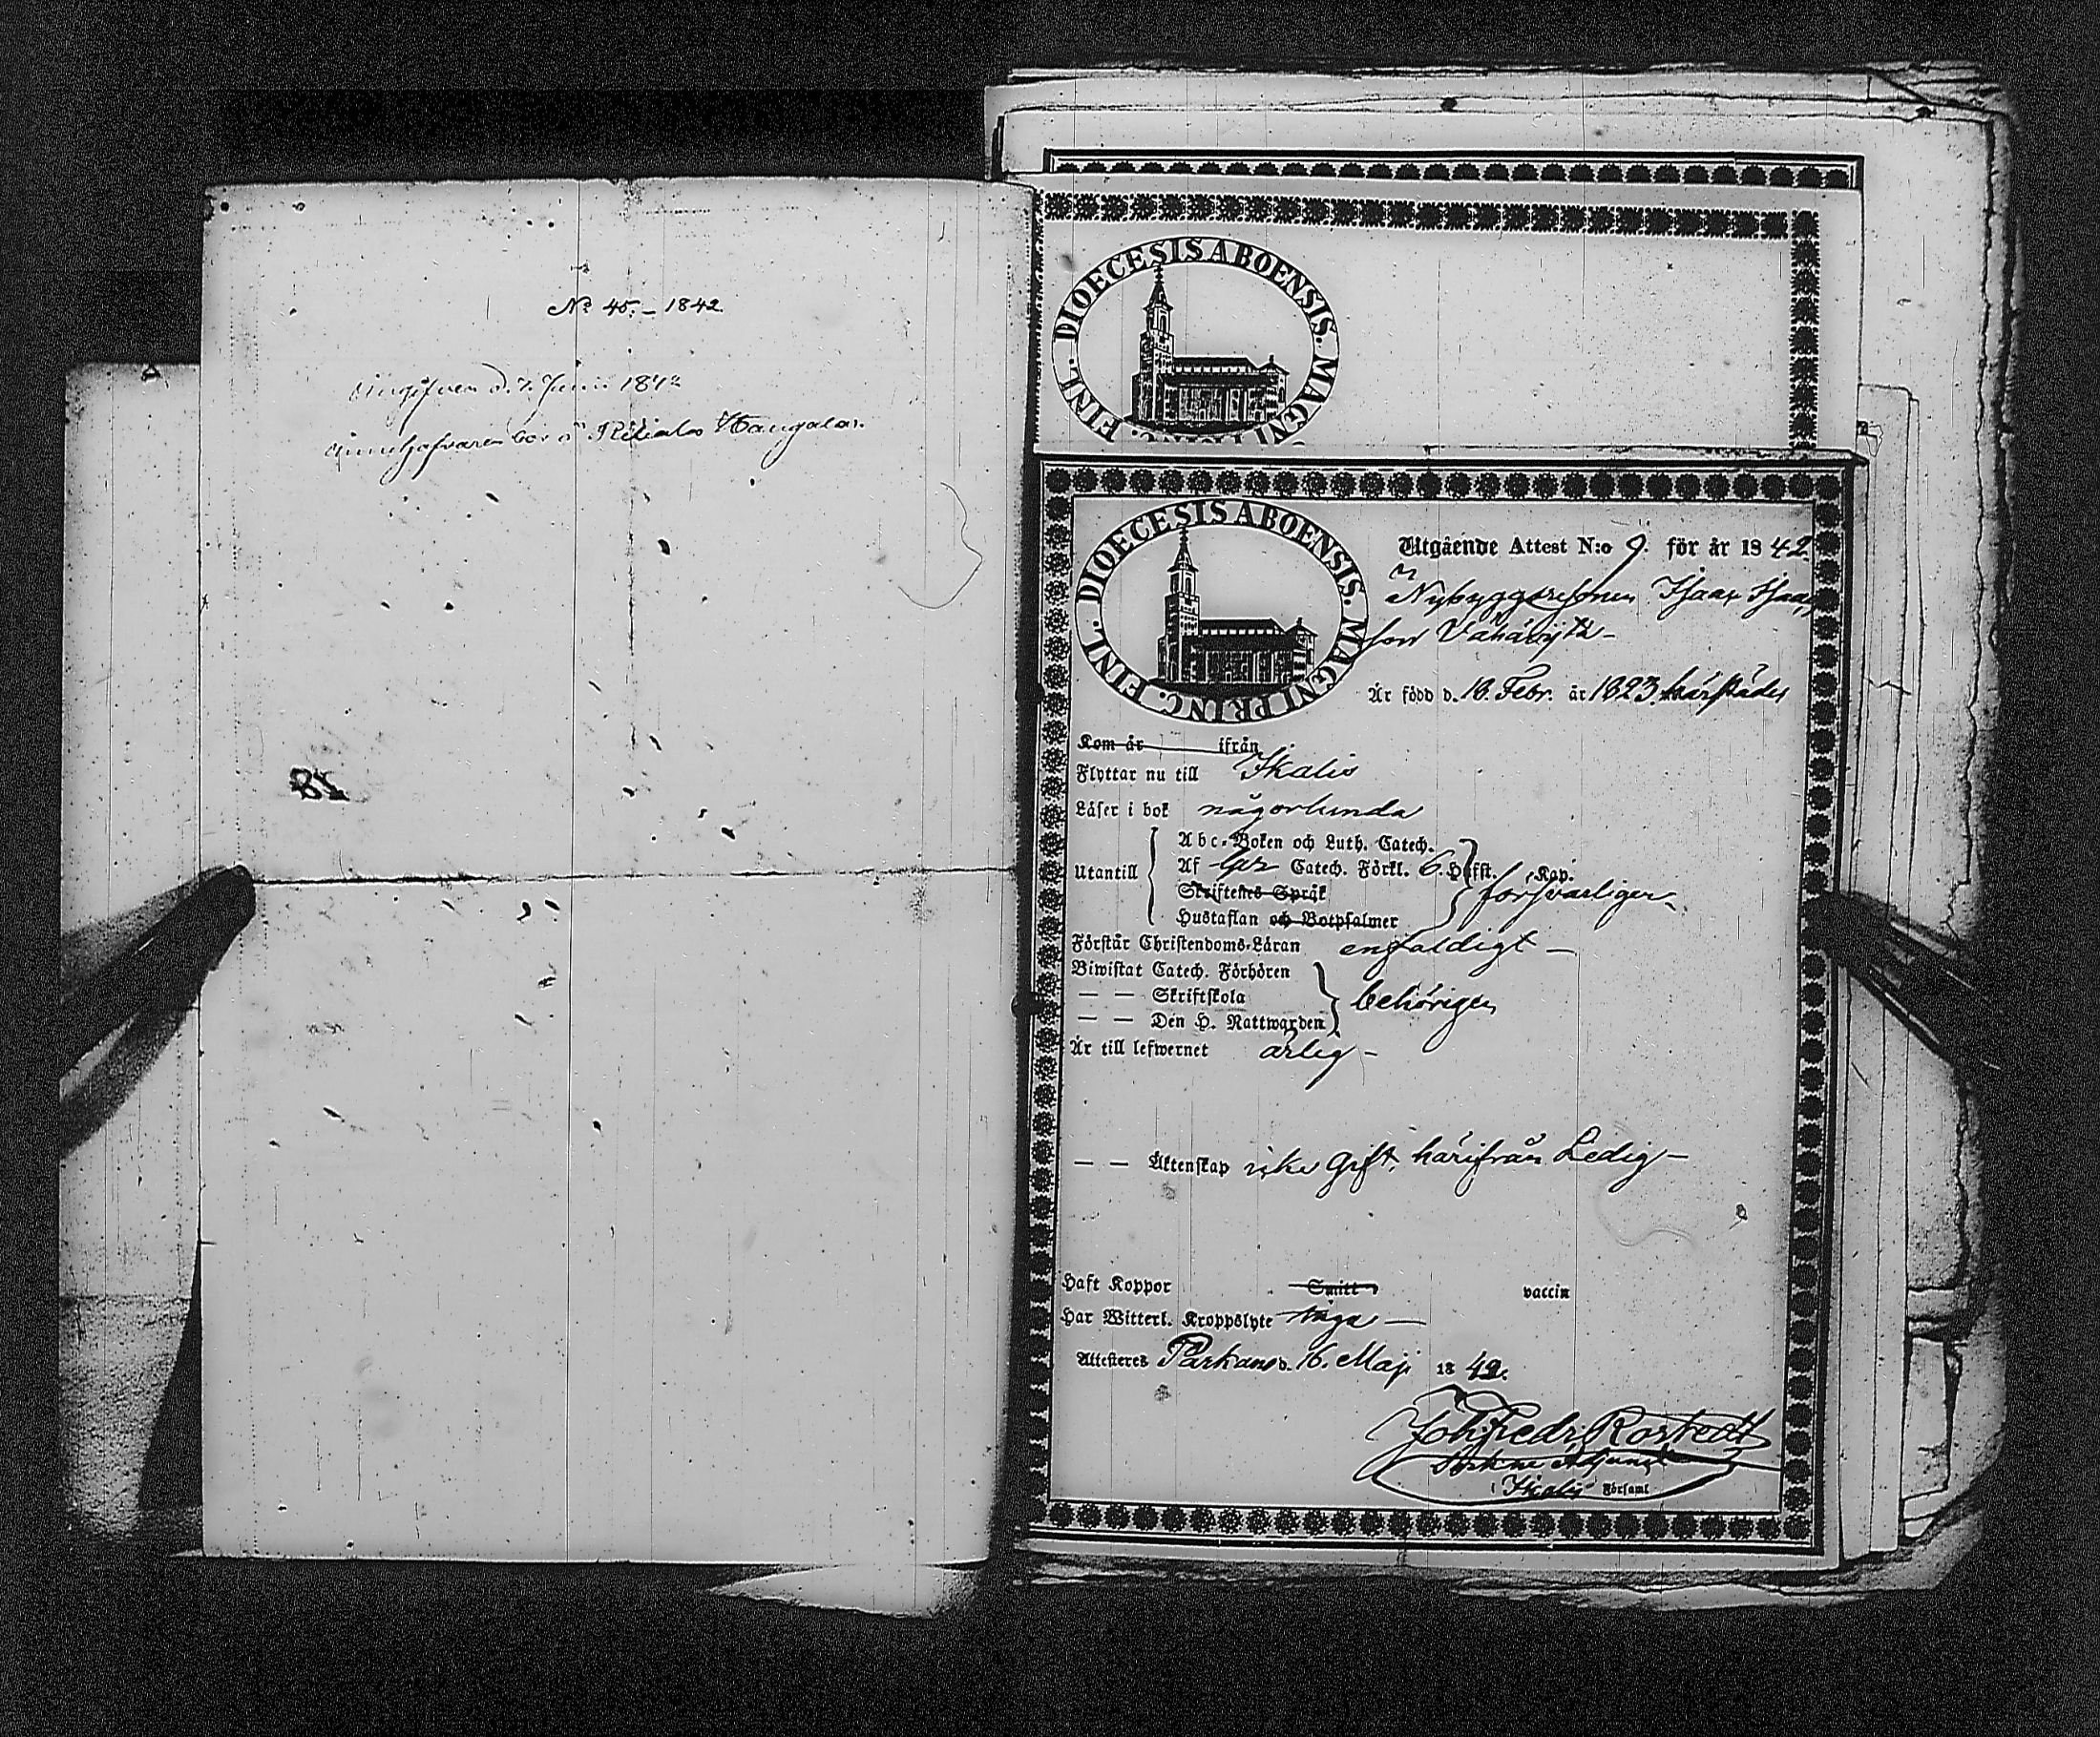 No 45. – 1842.
Ingifven d. 7. Junii 1842
Innehafvaren bor å Kangala.
DIOECESIS ABOENSIS. MAGNI PRINC. FINL.
DIOECESIS ABOENSIS. MAGNI PRINC. FINL.
Utgående Attest N:o 9. för år 1842.
Nybyggaresonen Isaac Isaac
son Vähäröyhiö –
Är född d. 18. Febr. år 1823. härstädes
Kom år ifrån
Flyttar nu till Ikalis
Läser i bok någorlunda
Utantill
Abc-Boken och Luth. Catech.
Af Catech. Förkl. 6. Hufst. Kap.
Skriftenes Språk
Hustaflan och Botpsalmer
försvarligen
Förstår Christendoms-Läran enfaldigt –
Biwistat Catech. Förhören
— — Skriftskola
— — Den H. Nattwarden
behörigen
Är till lefwernet ärlig –
— — Äktenskap icke Gift, härifrån Ledig –
Haft Koppor Smitt vaccin
Har Witterl. Kroppslyte inga —
Attesteras Parkano d. 16. Maji 1842.
Joh Fredr Rostedt
Sockne Adjunct
i Ikalis Församl